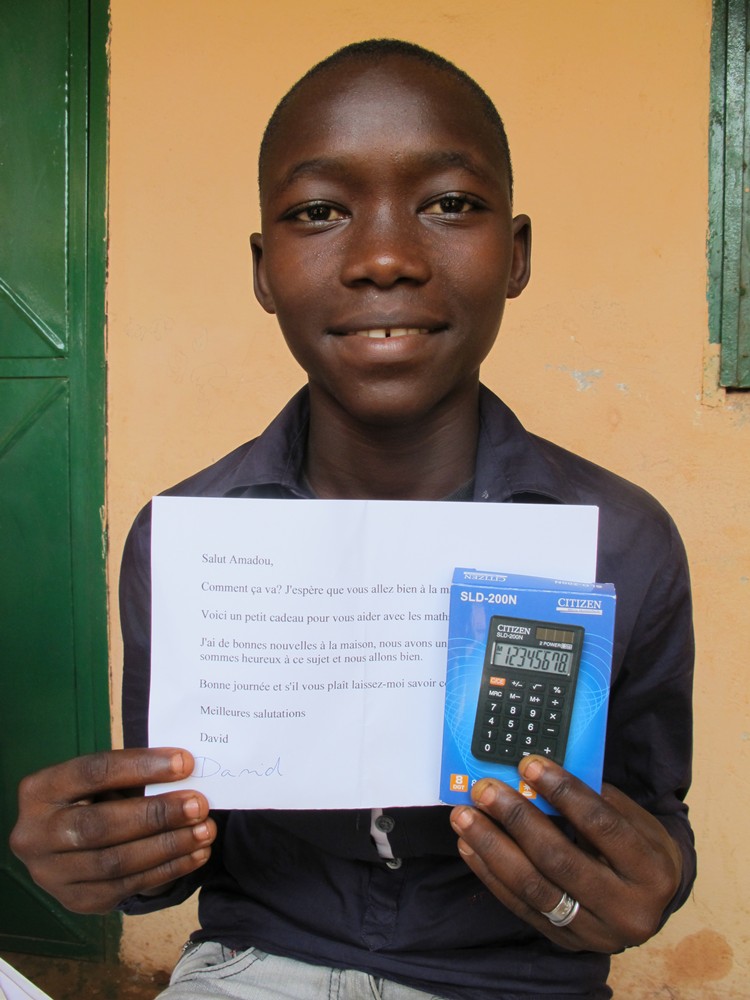 Salut Amadou,
Comment ça va? J'espère que vous allez bien à la
Voici un petit cadeau pour vous aider avec les
J'ai de bonnes nouvelles à la maison, nous avons
sommes heureux à ce sujet et nous allons bien.
Bonne journée et s'il vous plaît laissez-moi savoir
Meilleures salutations
David
David
CITIZEN
SLD-200N
CITIZEN
CITIZEN
SLD-200N
2 POWER
12345678
C/CE +/- √ %
MRC M- M+ ÷
7 8 9 ×
4 5 6 −
1 2 3 +
0 . =
8
DGT